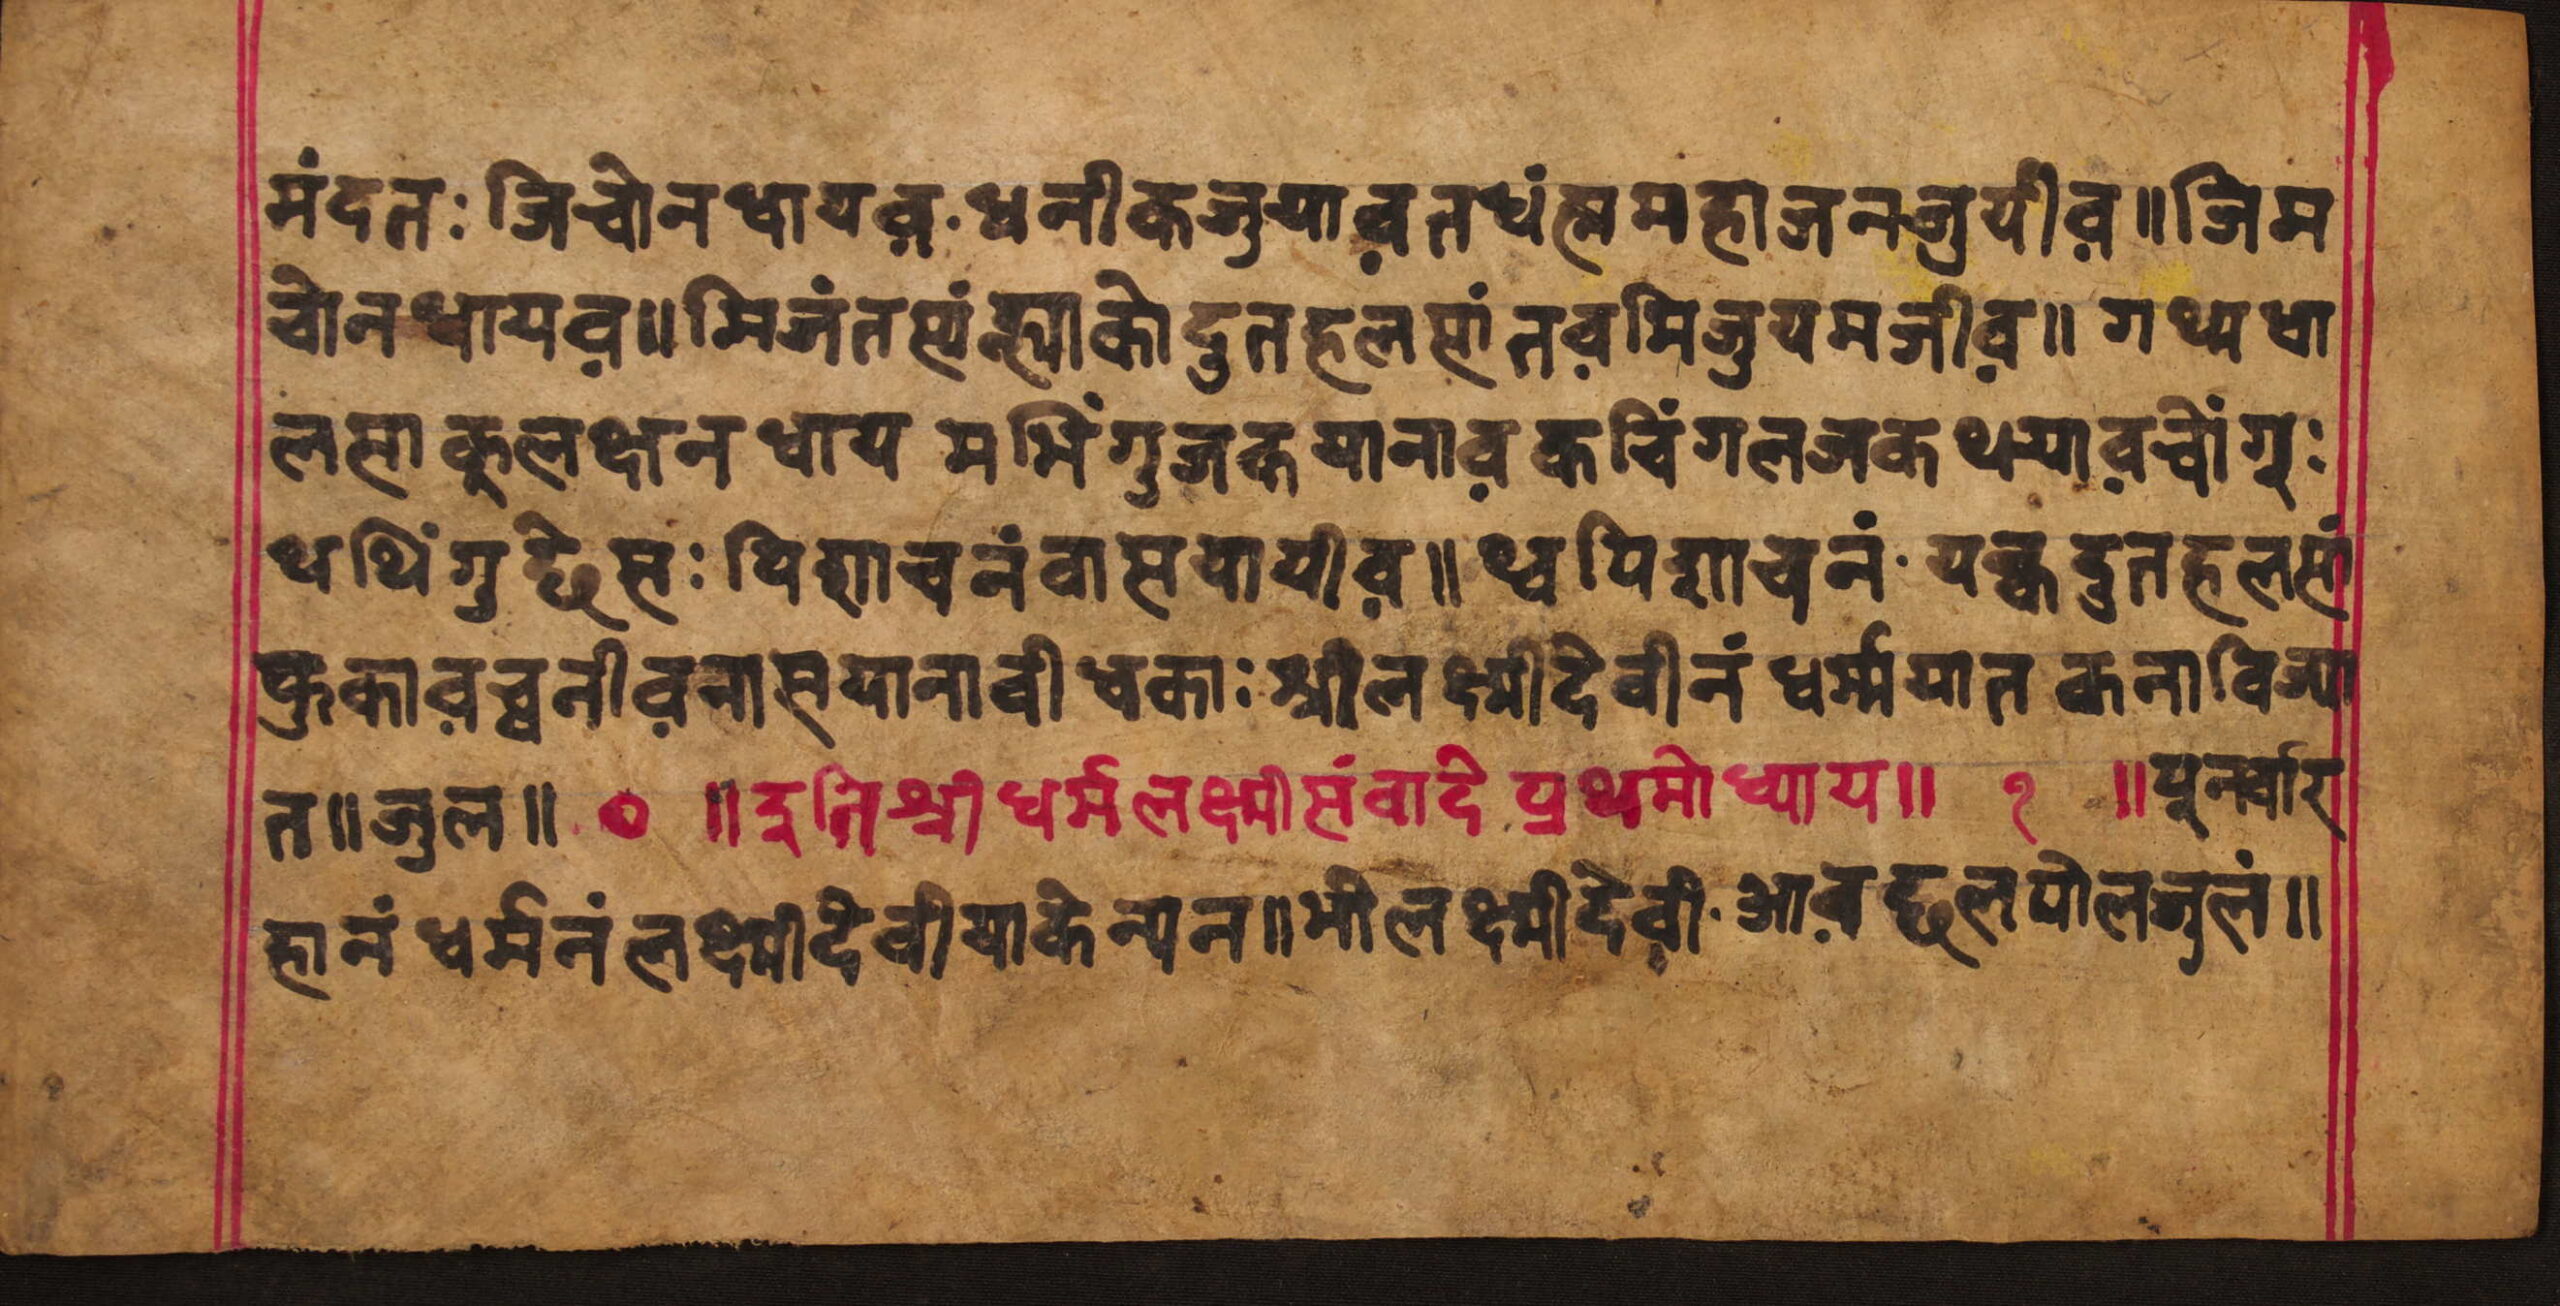 मंदतः जिचोनधायव़.धनीकजुयाव़तधंह्ममहाजनजुयीव़॥जिम
चोनधायव़॥मिजंतस्यंह्याकोदुतहलसांतव़मिजुयमजीव़॥ गथ्यधा
लसा कूलक्षनधाय मभिंगुजकयानाव़कचिंगलजकथयाव़चोंगूः
थथिंगुछेसः पिशाचनंवासयायीव़॥थ्वपिशाचनं.यक्वदुतहलसां
फुकाव़व़नीव़नासयानावीधकाः श्रीलक्ष्मीदेवीनं धर्म्मयात कनाविज्या
त॥जुल॥ ० ॥इतिश्रीधर्मलक्ष्मीसंवादे प्रथमोध्याय॥ १ ॥पूनर्व्वार
हानं धर्मनं लक्ष्मीदेवीयाके न्यन॥भोलक्ष्मीदेवी.आव़छलपोलजुलं॥